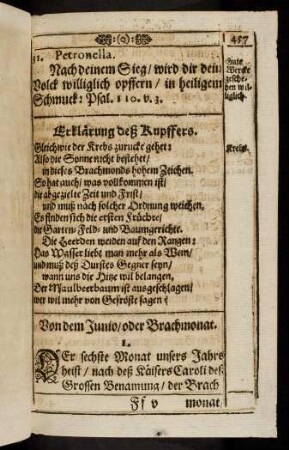 :(o):
457
31. Petronella.
Nach deinem Sieg / wird dir dein
Volck williglich opffern / in heiligem
Schmuck: Psal. 110. v. 3.
Gute
Wercke
gesche-
hen wil-
liglich.
Erklärung deß Kupffers.
Gleichwie der Krebs zurucke gehet:
Also die Sonne nicht bestehet /
in dieses Brachmonds hohem Zeichen.
So hat auch / was vollkommen ist /
die abgezielte Zeit und Frist /
und muß nach solcher Ordnung weichen.
Es finden sich die ersten Früchte /
die Garten- Feld- und Baumgerichte.
Die Heerden weiden auf den Rangen:
Das Wasser liebt man mehr als Wein /
und muß deß Durstes Gegner seyn /
wann uns die Hitze wil belangen.
Der Maulbeerbaum ist ausgeschlagen /
wer wil mehr von Gefröste sagen?
Krebs.
Von dem Junio / oder Brachmonat.
1.
DEr sechste Monat unsers Jahrs
heist / nach deß Käisers Caroli deß
Grossen Benamung / der Brach
Ff v
monat /